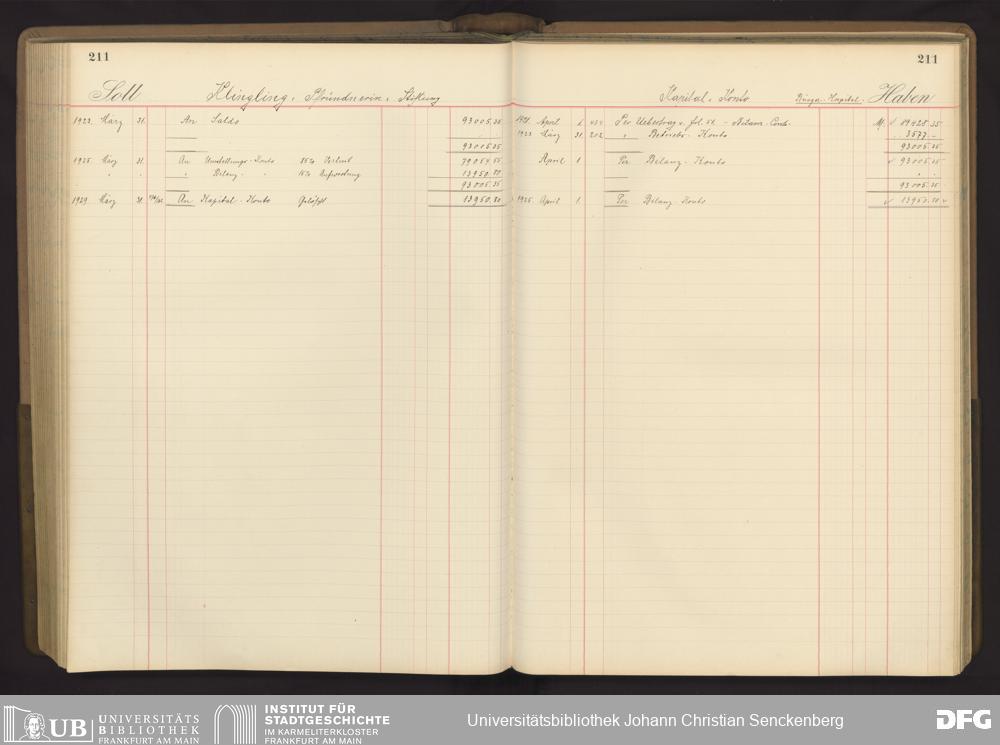 211
Soll Klingling, Pfründnerin, Stiftung
1923. März 31. An Saldo 93005.35
93005.35
1925. März 31. An Umstellungs-Konto 85% Verlust 79054.55
" " " Bilanz " 15% Aufwertung 13950.80
93005.35
1929. März 31. An Kapital-Konto Gelöscht 13950.80
211
Kapital-Konto Haben
1921. April 1. Per Uebertrag v. fol. 89428.35
1923. März 31. 202 " Betriebs-Konto 3577.-
93005.35
April 1 Per Bilanz-Konto 93005.35
93005.35
1925. April 1. Per Bilanz-Konto 13950.80
UB UNIVERSITÄTS
BIBLIOTHEK
FRANKFURT AM MAIN
INSTITUT FÜR
STADTGESCHICHTE
IM KARMELITERKLOSTER
FRANKFURT AM MAIN
Universitätsbibliothek Johann Christian Senckenberg
DFG